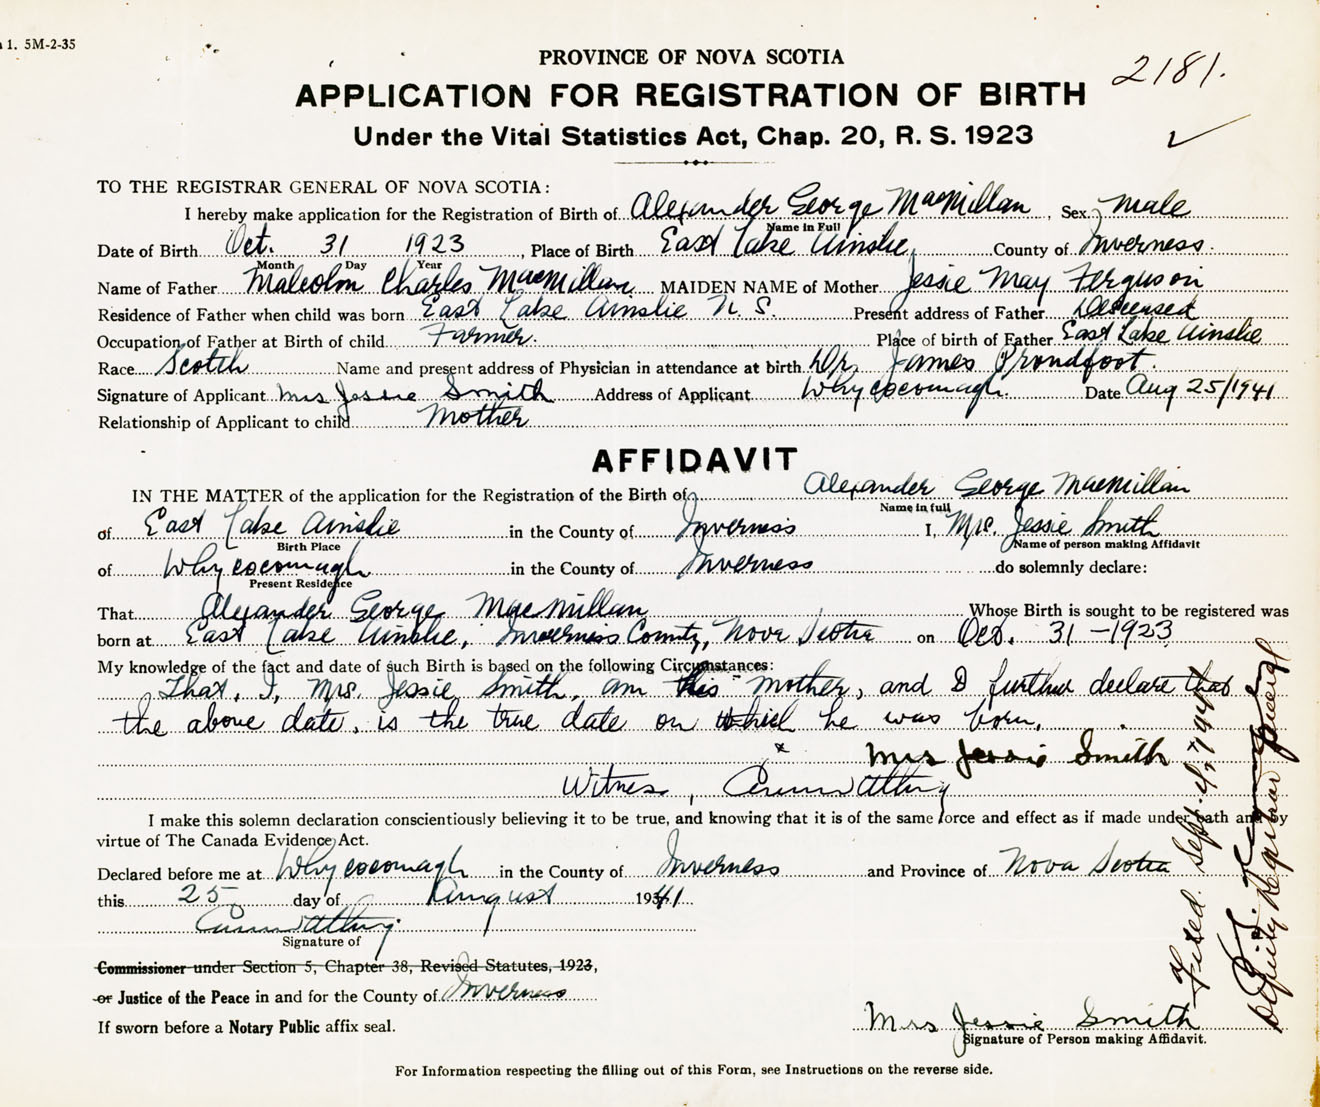 1. 5M-2-35
PROVINCE OF NOVA SCOTIA
2181.
APPLICATION FOR REGISTRATION OF BIRTH
Under the Vital Statistics Act, Chap. 20, R. S. 1923
TO THE REGISTRAR GENERAL OF NOVA SCOTIA:
I hereby make application for the Registration of Birth of Alexander George MacMillan, Sex male
Name in Full
Date of Birth Oct. 31 1923, Place of Birth East Lake Ainslie, County of Inverness.
Month Day Year
Name of Father Malcolm Charles MacMillan MAIDEN NAME of Mother Jessie May Ferguson
Residence of Father when child was born East Lake Ainslie N. S. Present address of Father Deceased
Occupation of Father at Birth of child Farmer. Place of birth of Father East Lake Ainslie
Race Scotch Name and present address of Physician in attendance at birth Dr. James Proudfoot.
Signature of Applicant Mrs Jessie Smith Address of Applicant Whycocomagh. Date Aug 25/1941
Relationship of Applicant to child Mother
AFFIDAVIT
IN THE MATTER of the application for the Registration of the Birth of Alexander George Macmillan
Name in full
of East Lake Ainslie in the County of Inverness I, Mrs. Jessie Smith
Birth Place Name of person making Affidavit
of Whycocomagh in the County of Inverness do solemnly declare:
Present Residence
That Alexander George MacMillan Whose Birth is sought to be registered was
born at East Lake Ainslie, Inverness County, Nova Scotia on Oct. 31-1923
My knowledge of the fact and date of such Birth is based on the following Circumstances:
That, I, Mrs. Jessie Smith, am his mother, and I further declare that
the above date, is the true date on which he was born.
x Mrs Jessie Smith
Witness,
I make this solemn declaration conscientiously believing it to be true, and knowing that it is of the same force and effect as if made under oath and by
virtue of The Canada Evidence Act.
Declared before me at Whycocomagh in the County of Inverness and Province of Nova Scotia
this 25 day of August 1941
Signature of
Commissioner under Section 5, Chapter 38, Revised Statutes, 1923,
or Justice of the Peace in and for the County of Inverness
If sworn before a Notary Public affix seal.
Mrs Jessie Smith
Signature of Person making Affidavit.
For Information respecting the filling out of this Form, see Instructions on the reverse side.
Filed. Sept.
Deputy Registrar General